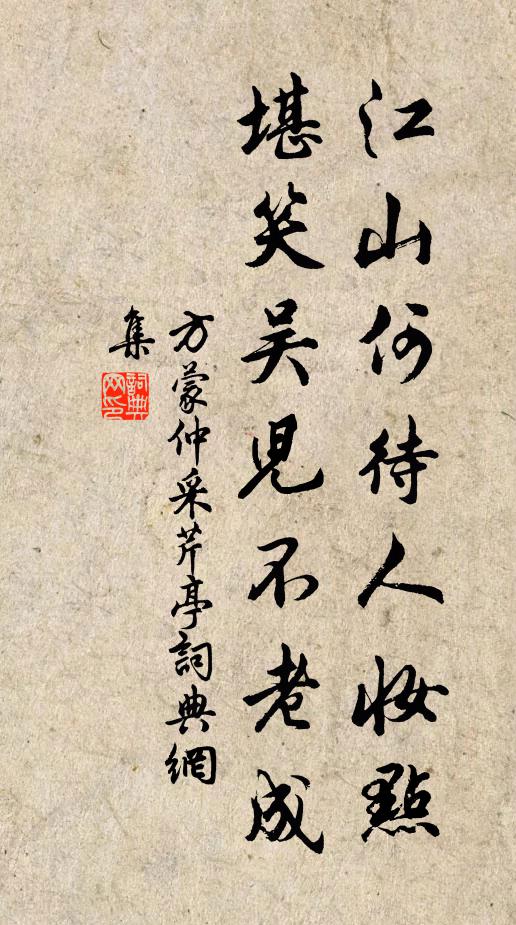 江山何待人妝點
堪笑吴兒不老成
方蒙仲采芹亭詞典網
集
詞典網印